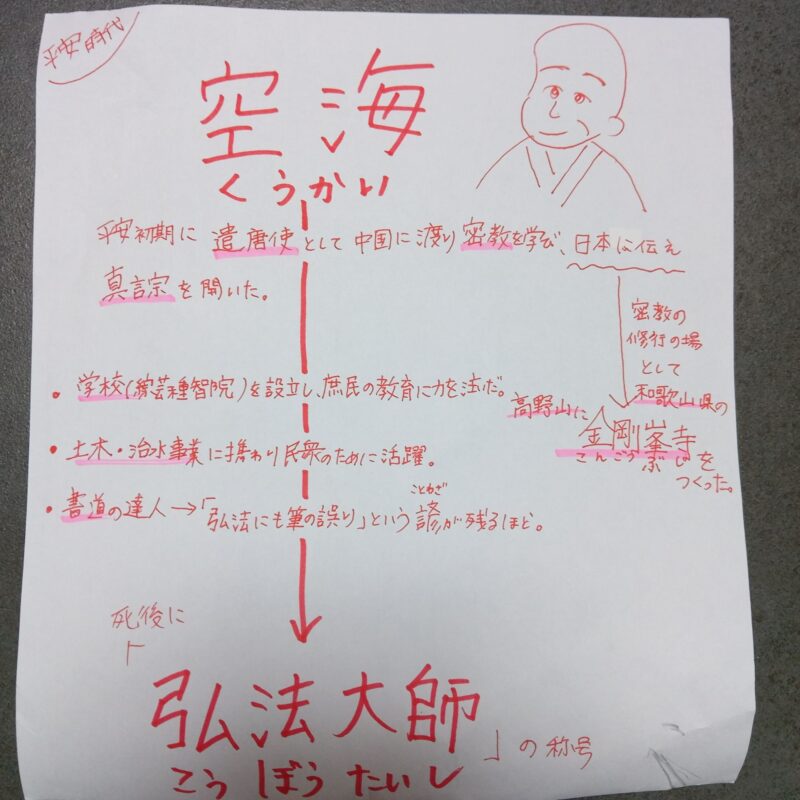 平安時代
空海
くうかい
平安初期に遣唐使として中国に渡り密教を学び、日本に伝え
真言宗を開いた。
密教の
修行の場
として
和歌山県の
高野山に
金剛峯寺を
こんごうぶじ
つくった。
・学校(綜芸種智院)を設立し、庶民の教育に力を注いだ。
・土木・治水事業に携わり民衆のために活躍。
・書道の達人→「弘法にも筆の誤り」という諺が残るほど。
ことわざ
死後に
「弘法大師」の称号
こうぼうたいし